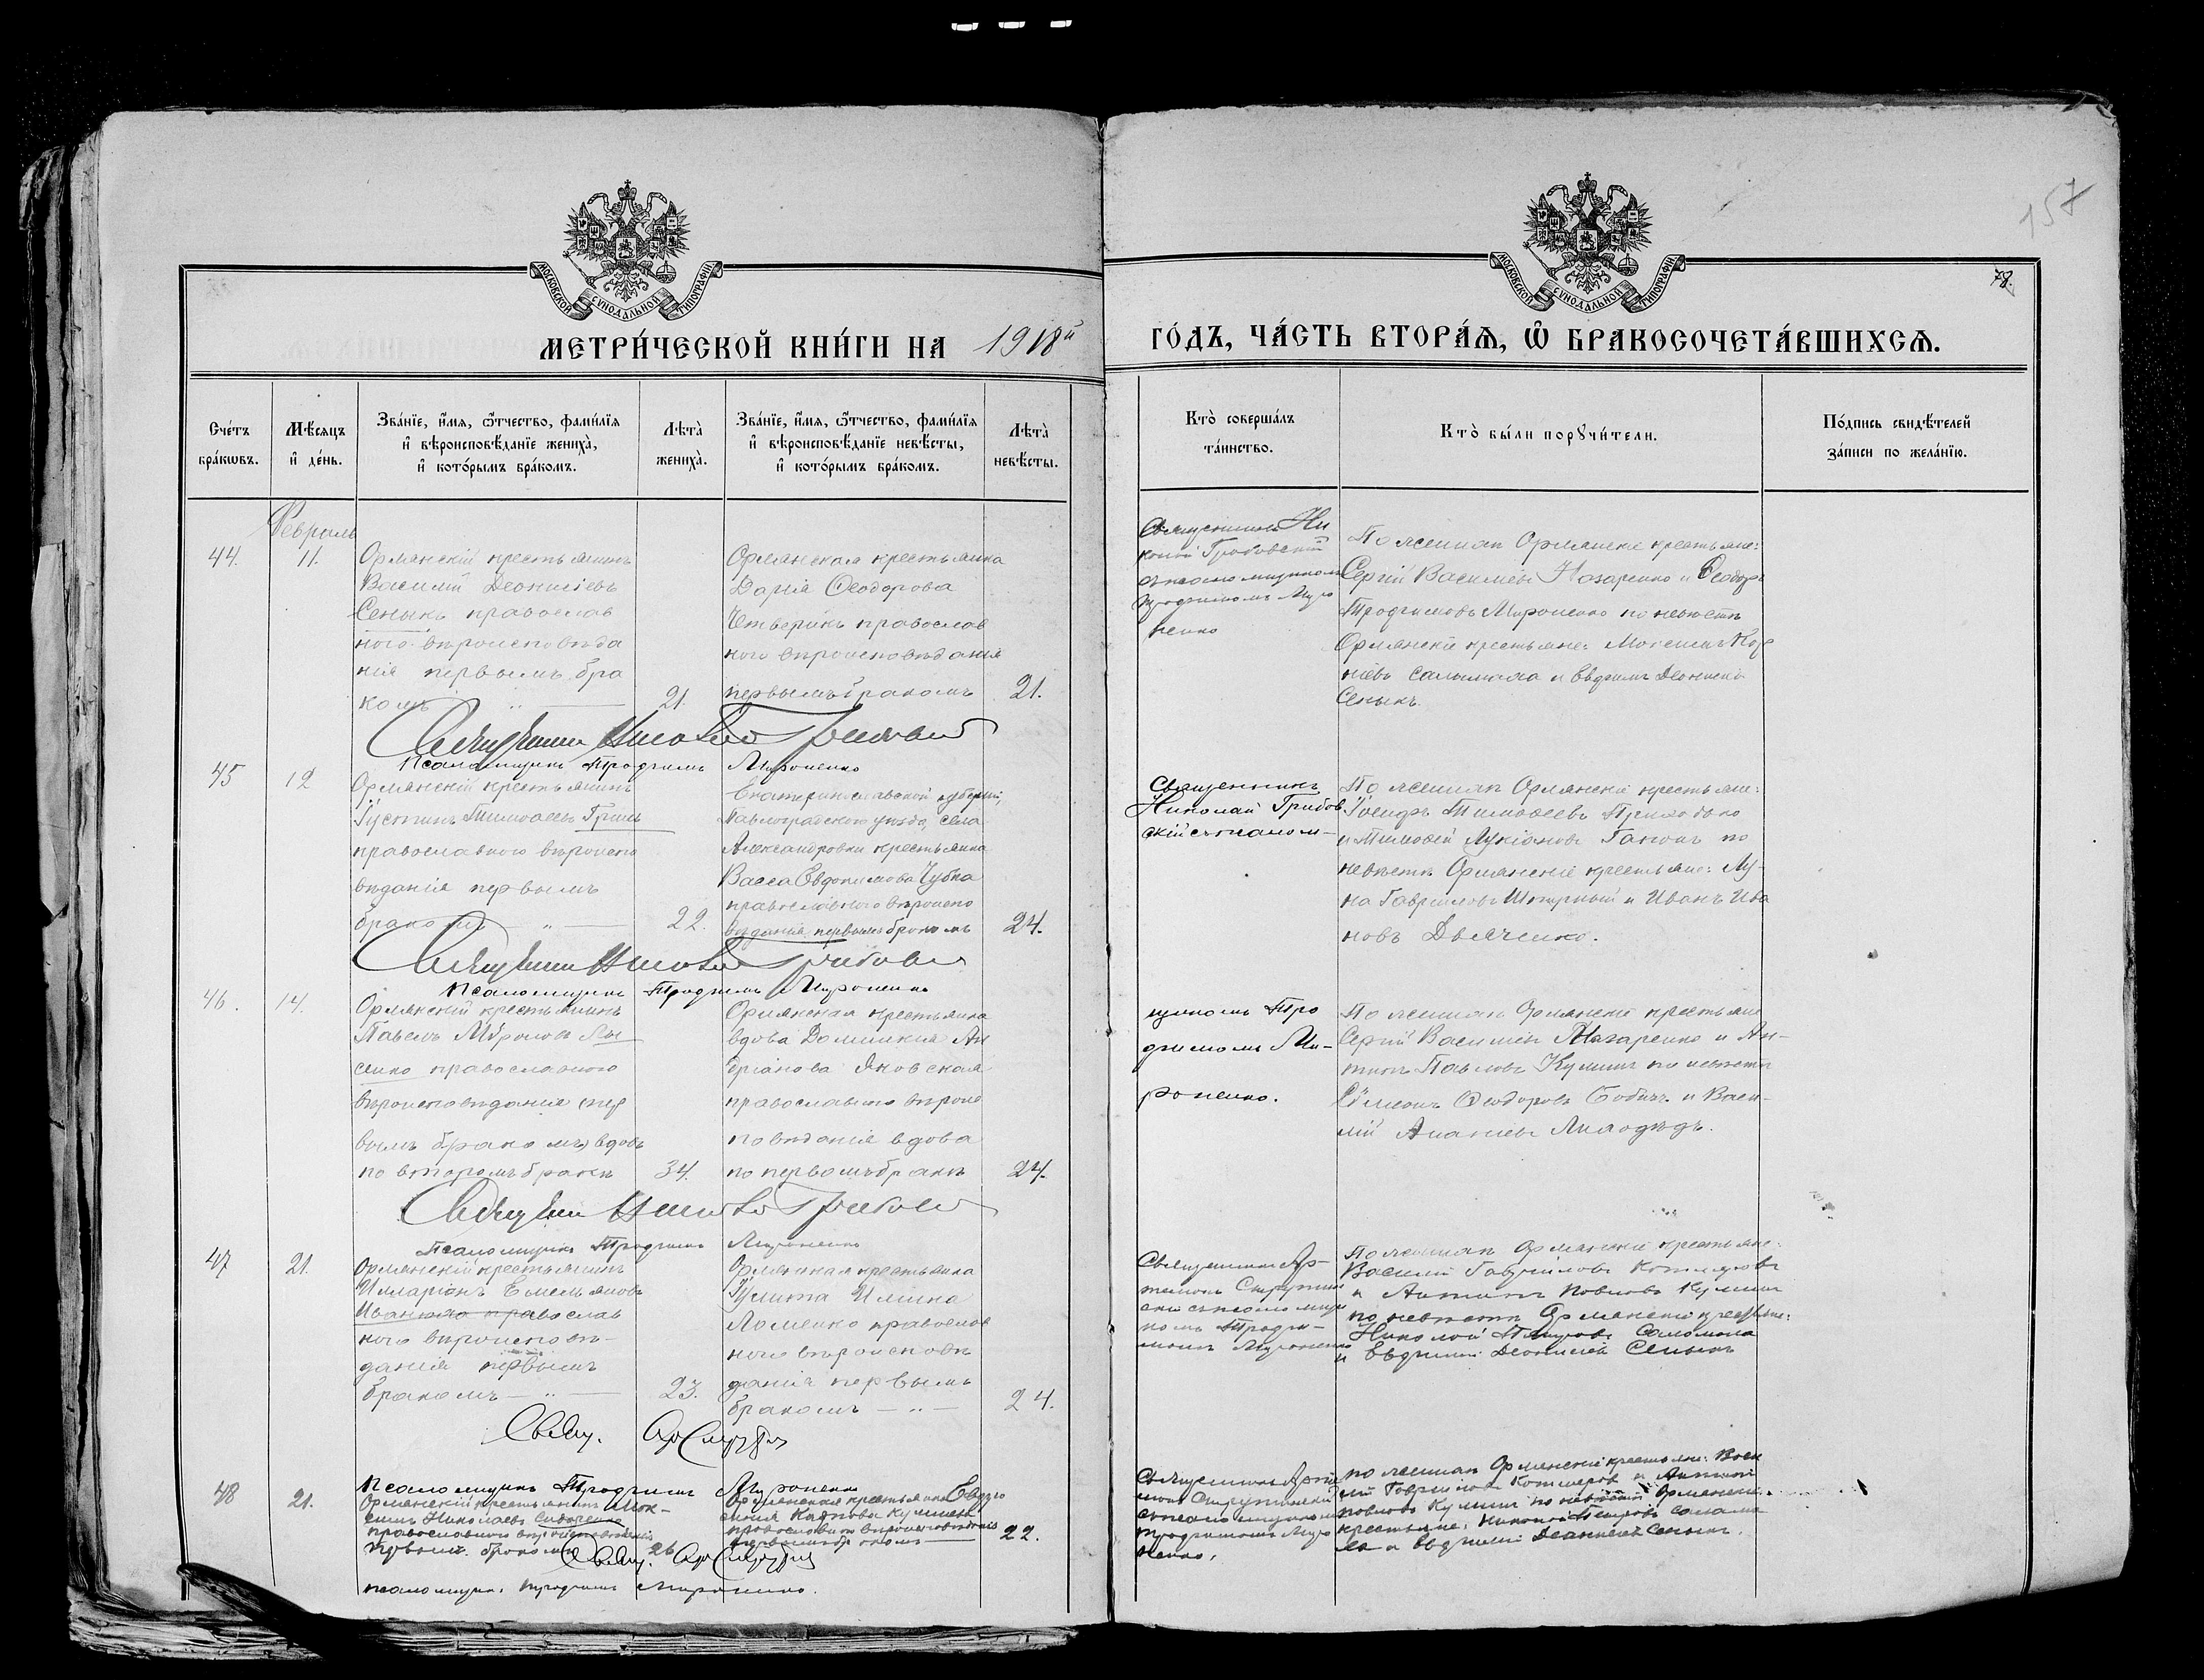 157
78.
МОСКОВСКОЙ СѴНОДАЛЬНОЙ ТИПОГРАФІИ
МОСКОВСКОЙ СѴНОДАЛЬНОЙ ТИПОГРАФІИ
МЕТРИ́ЧЕСКОЙ КНИ́ГИ НА 1918й
ГО́ДЪ, ЧА́СТЬ ВТОРА́Ѧ, Ѽ БРАКОСОЧЕТА́ВШИХСѦ.
Сче́тъ бра́кѡвъ.
Мѣ́сѧцъ и҆ де́нь.
Зва́нїе, и҆́мѧ, ѻ҆́тчество, фами́лїѧ
и҆ вѣроисповѣ́данїе жениха̀,
и҆ кото́рымъ бра́комъ.
Лѣ́та̀ жениха̀.
Зва́нїе, и҆́мѧ, ѻ҆́тчество, фами́лїѧ
и҆ вѣроисповѣ́данїе невѣ́сты,
и҆ кото́рымъ бра́комъ.
Лѣ́та̀ невѣ́сты.
Кто̀ соверша́лъ
та́инство.
Кто̀ бы́ли порꙋчи́тели.
По́дпись свидѣ́телей
за́писи по жела́нїю.
Февраль
44.
11.
Ормянскій крестьянинъ
Василій Діонисіевъ
Сенькъ православ
ного вѣроисповѣда
нія первымъ бра
комъ
21.
Ормянская крестьянка
Дарія Ѳеодорова
Четверикъ православ
ного вѣроисповѣданія
первымъ бракомъ
21.
Священникъ Ни
колай Грибовскій
съ псаломщикомъ
Трофимомъ Миро
ненко
По женихѣ Ормянскіе крестьяне:
Сергій Василіевъ Назаренко и Ѳеодоръ
Трофимовъ Мироненко по невѣстѣ
Ормянскіе крестьяне: Максимъ Кор
ніевъ Саломаха и Евфимъ Діонисіевъ
Сенькъ.
Священникъ Николай Грибовскій
Псаломщикъ Трофимъ Мироненко
45
12
Ормянскій крестьянинъ
Іустинъ Тимоѳеевъ
православного вѣроиспо
вѣданія первымъ
бракомъ
22.
Екатеринославской губерніи,
Павлоградского уѣзда, села
Александровки крестьянка
Васса Евдокимова Чубка
православного вѣроиспо
вѣданія первымъ бракомъ
24.
Священникъ
Николай Грибов
скій съ псалом-
По женихѣ Ормянскіе крестьяне:
Іосифъ Тимоѳеевъ Приходько
и Тимоѳей Лукіановъ Гапонъ по
невѣстѣ Ормянскіе крестьяне: Лу-
ка Гавріиловъ и Иванъ Ива
новъ Дьяченко.
Священникъ Николай Грибовскій
Псаломщикъ Трофимъ Мироненко
46.
14.
Ормянскій крестьянинъ
Павелъ Лы
сенко православного
вѣроисповѣданія пер
вымъ бракомъ вдовъ
по второмъ бракѣ
34.
Ормянская крестьянка
вдова Домникія Ан
дріанова Яновская
православного вѣроис
повѣданія вдова
по первомъ бракѣ
24.
щикомъ Тро
фимомъ Ми-
роненко.
По женихѣ Ормянскіе крестьяне
Сергій Василіевъ Назаренко и Ан-
тонъ Павловъ Кулишъ по невѣстѣ
Сімеонъ Ѳеодоровъ и Васи-
лій Ананіевъ
Священникъ Николай Грибовскій
Псаломщикъ Трофимъ Мироненко
47
21.
Ормянскій крестьянинъ
Илларіонъ Емельяновъ
Иванько православ
ного вѣроисповѣ-
данія первымъ
бракомъ
23.
Ормянская крестьянка
Іулита Ильина
Ломенко православ
ного вѣроисповѣ
данія первымъ
бракомъ
24.
Священникъ Ар-
съ псаломщи
комъ Трофи-
момъ Мироненко
По женихѣ Ормянскіе крестьяне:
Василій Гавріиловъ Котляровъ
и Антонъ Павловъ Кулишъ
по невѣстѣ Ормянскіе крестьяне:
Николай Петровъ Саломаха
и Евфимій Діонисіевъ Сенькъ
Свящ.
Псаломщикъ Трофимъ Мироненко
48
21.
Ормянскій крестьянинъ Мак-
симъ Николаевъ Сидоренко
православного вѣроисповѣданія
первымъ бракомъ
26
Ормянская крестьянка Евдо
Карпова Кулишъ
православного вѣроисповѣданія
первымъ бракомъ
22.
Священникъ
съ псаломщикомъ
Трофимомъ Миро
ненко.
по женихѣ Ормянскіе крестьяне: Васи
лій Гавріиловъ Котляровъ и Антоній
Павловъ Кулишъ по невѣстѣ Ормянскіе
крестьяне: Николай Петровъ Салама
ха и Евфимій Діонисіевъ Сенькъ.
Свящ.
псаломщикъ Трофимъ Мироненко.